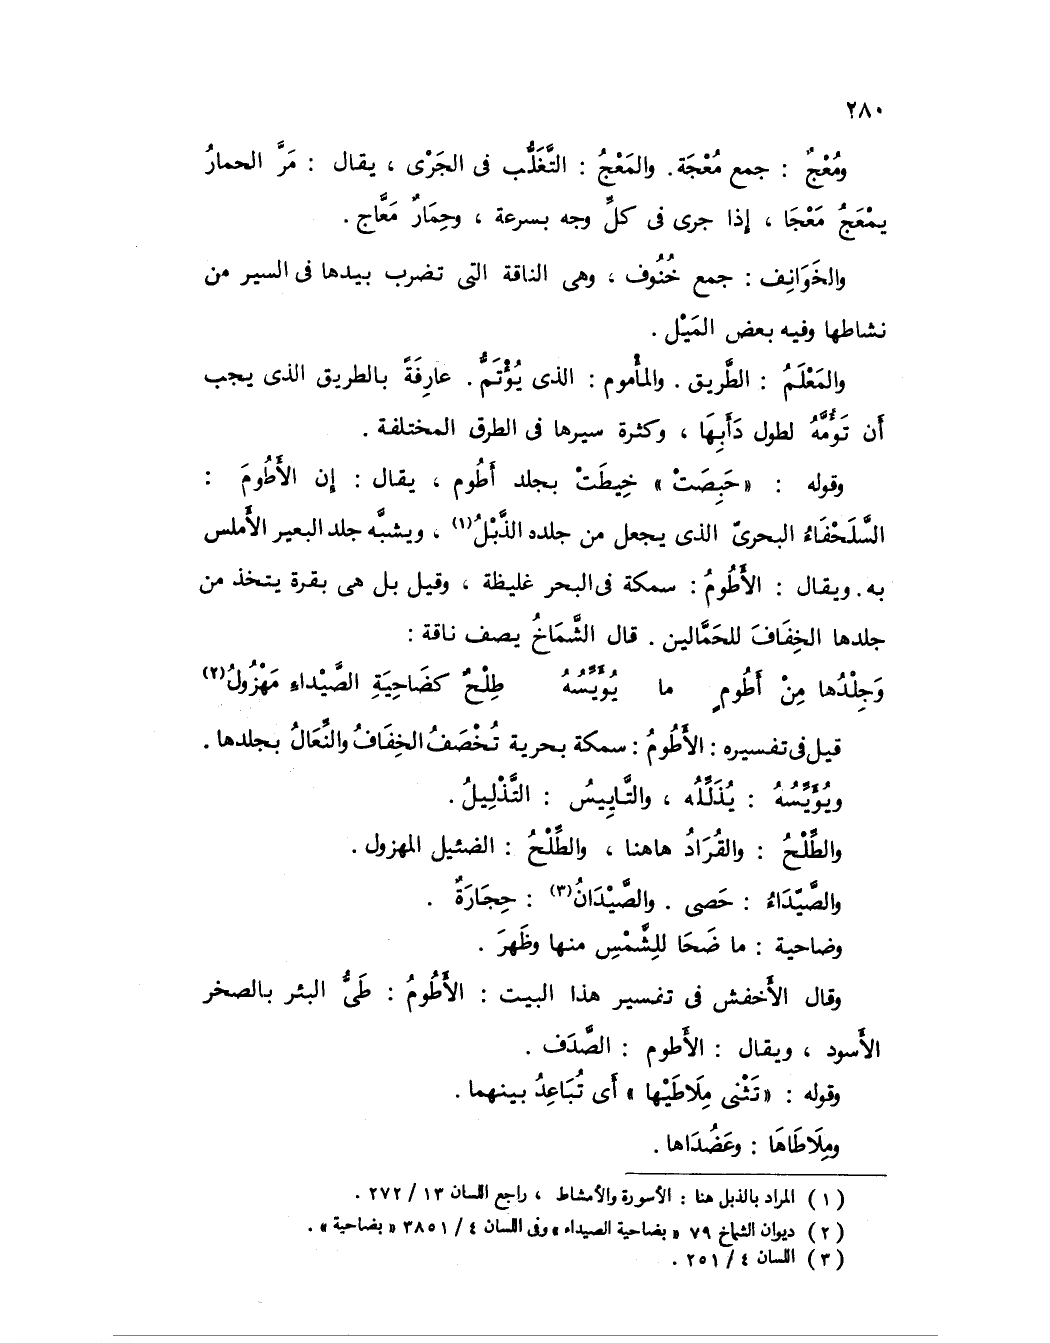 ٢٨٠
ومُعْجٌ : جمع مُعْجَة. والمَعْجُ : التَّغَلُّب فى الجَرْى ، يقال : مَرَّ الحمارُ
يمْعَجُ مَعْجَا ، إذا جرى فى كلِّ وجه بسرعة ، وحِمَارٌ مَعَّاج .
والخَوَانِف : جمع خُنُوف ، وهى الناقة التى تضرب بيدها فى السير من
نشاطها وفيه بعض المَيْل .
والمَعْلَمُ : الطَّريق . والمأْموم : الذى يُؤْتَمُّ . عارِفَةً بالطريق الذى يجب
أَن تَؤُمَّهُ لطول دَأَبِهَا ، وكثرة سيرها فى الطرق المختلفة .
وقوله : « حَبِصَتْ » خِيطَتْ بجلد أَطُوم ، يقال : إن الأَطُومَ :
السَّلَحْفَاءُ البحرىّ الذى يجعل من جلده الذَّبْلُ(١) ، ويشبَّه جلد البعير الأَملس
به . ويقال : الأَطُومُ : سمكة فى البحر غليظة ، وقيل بل هى بقرة يتخذ من
جلدها الخِفَافَ للحَمَّالين . قال الشَّمَاخُ يصف ناقة :
وَجِلْدُها مِنْ أَطُومٍ ما يُؤَيِّسُهُ طِلْحٌ كضَاحِيَةِ الصَّيْداءِ مَهْزُولُ(٢)
قيل فى تفسيره : الأَطُومُ : سمكة بحرية تُخْصَفُ الخِفَافُ والنِّعَالُ بجلدها .
ويُؤَيِّسُهُ : يُذَلِّلُه ، والتَّايِيسُ : التَّذْلِيلُ .
والطِّلْحُ : والقُرَادُ هاهنا ، والطِّلْحُ : الضئيل المهزول .
والصَّيّدَاءُ : حَصى . والصَّيْدَانُ(٣) : حِجَارَةٌ .
وضاحية : ما ضَحَا للِشَّمْسِ منها وظَهرَ .
وقال الأَخفش فى تفسير هذا البيت : الأَطُومُ : طَىُّ البئر بالصخر
الأَسود ، ويقال : الأَطوم : الصَّدَف .
وقوله : « تَثْنى مِلَاطَيْها » أَى تُبَاعِدُ بينهما .
ومِلَاطَاهَا : وعَضُدَاها .
( ١ ) المراد بالذبل هنا : الأسورة والأمشاط ، راجع اللسان ١٣ / ٢٧٢ .
( ٢ ) ديوان الشماخ ٧٩ « بضاحية الصيداء » وفى اللسان ٤ / ٣٨٥١ « بضاحية » .
( ٣ ) اللسان ٤ / ٢٥١ .